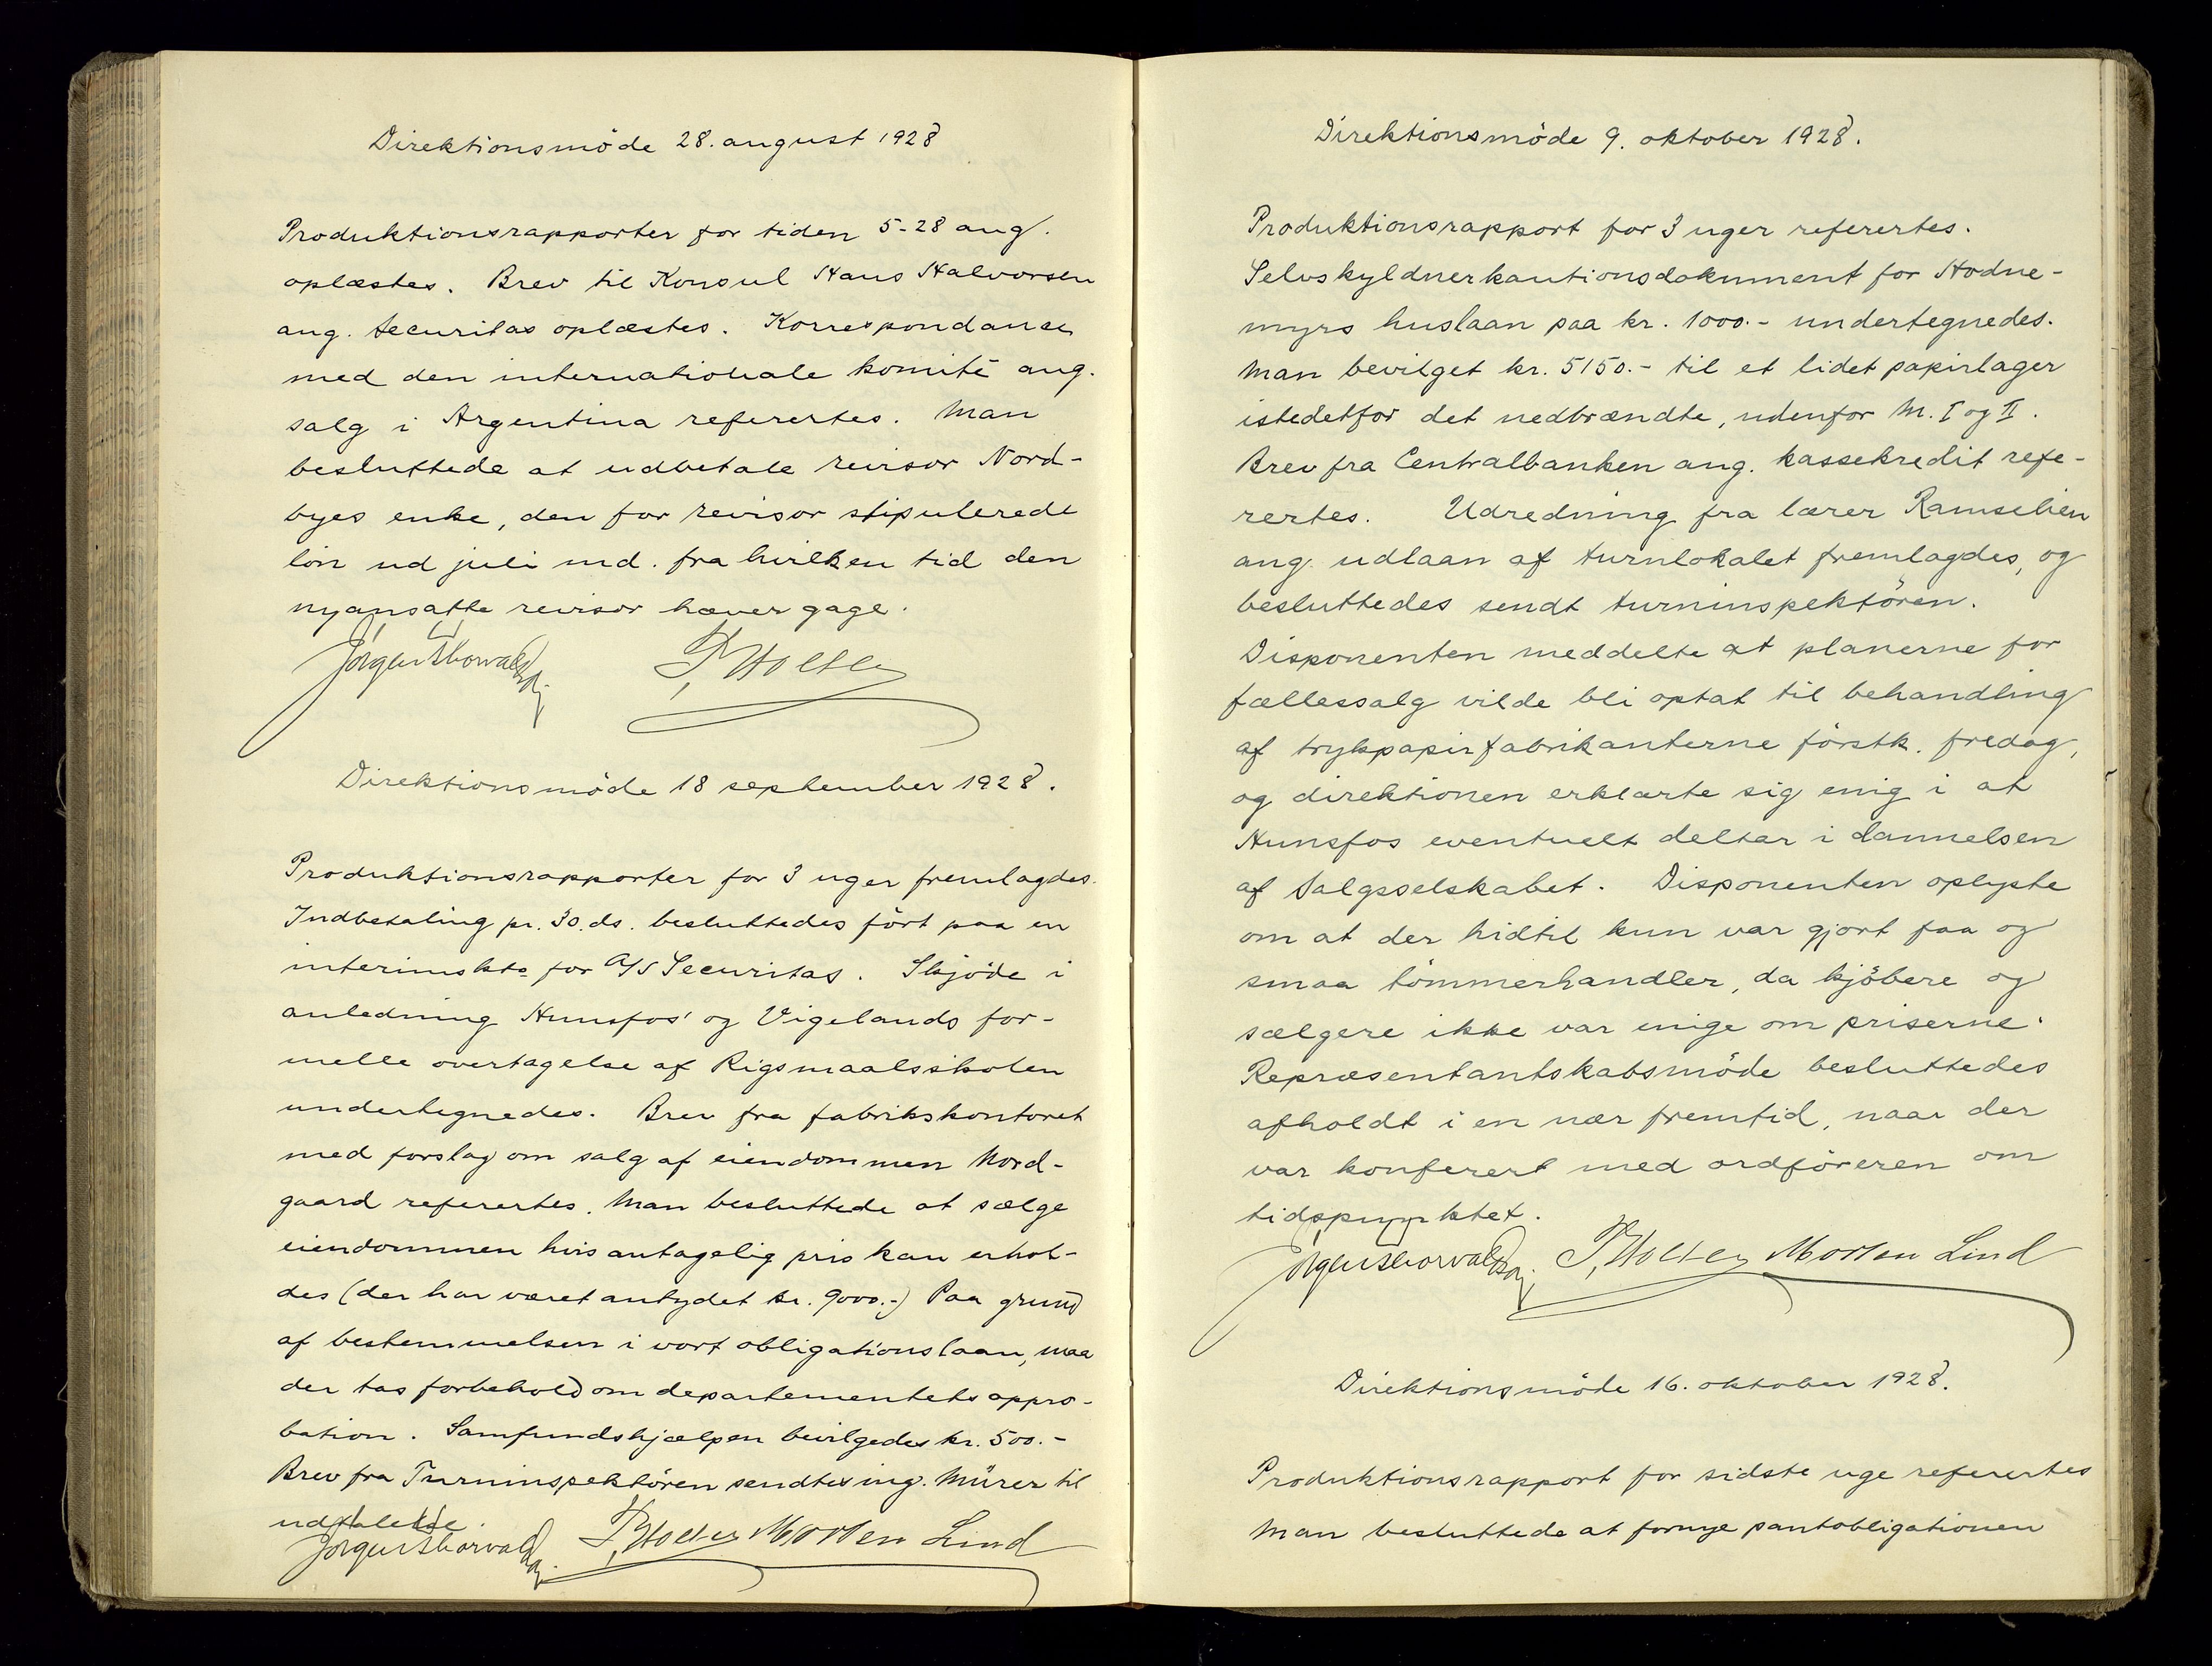 Direktionsmöde 28. august 1928
Produktionsrapporter for tiden 5-28 aug.
oplæstes. Brev til Konsul Hans Halvorsen
ang. Securitas oplæstes. Korrespondance
med den internationale komité ang.
salg i Argentina referertes. Man
besluttede at udbetale revisor Nord-
byes enke, den for revisor stipulerede
lön ud juli md. fra hvilken tid den
nyansatte revisor hæver gage.
Jörgen Thorvaldsen P. Holter
Direktionsmöde 18 september 1928.
Produktionsrapporter for 3 uger fremlagdes.
Indbetaling pr. 30. ds. besluttedes fört paa en
interimskto for A/S Securitas. Skjöde i
anledning Hunsfos' og Vigelands for-
melle overtagelse af Rigsmaalsskolen
undertegnedes. Brev fra fabrikskontoret
med forslag om salg af eiendommen Nord-
gaard referertes. Man besluttede at sælge
eiendommen hvis antagelig pris kan erhol-
des (der har været antydet kr. 9000.-) Paa grund
af bestemmelsen i vort obligationslaan, maa
der tas forbehold om departementets appro-
bation. Samfundshjælpen bevilgedes kr. 500.-
Brev fra Turninspektören sendtes ing. Mürer til
udtalelse.
Jörgen Thorvaldsen P. Holter Morten Lind
Direktionsmöde 9. oktober 1928.
Produktionsrapport for 3 uger referertes.
Selvskyldnerkautionsdokument for Hodne-
myrs huslaan paa kr. 1000.- undertegnedes.
Man bevilget kr. 5150.- til et lidet papirlager
istedetfor det nedbrændte, udenfor M. I og II.
Brev fra Centralbanken ang. kassekredit refe-
rertes. Udredning fra lærer Ramselien
ang. udlaan af turnlokalet fremlagdes, og
besluttedes sendt turninspektören.
Disponenten meddelte at planerne for
fællessalg vilde bli optat til behandling
af trykpapirfabrikanterne förstk. fredag,
og direktionen erklærte sig enig i at
Hunsfos eventuelt deltar i dannelsen
af Salgsselskabet. Disponenten oplyste
om at der hidtil kun var gjort faa og
smaa tömmerhandler, da kjöbere og
sælgere ikke var enige om priserne.
Repræsentantskabsmöde besluttedes
afholdt i en nær fremtid, naar der
var konferert med ordföreren om
tidspunktet.
Jörgen Thorvaldsen P. Holter Morten Lind
Direktionsmöde 16. oktober 1928.
Produktionsrapport for sidste uge referertes
Man besluttede at fornye pantobligationen